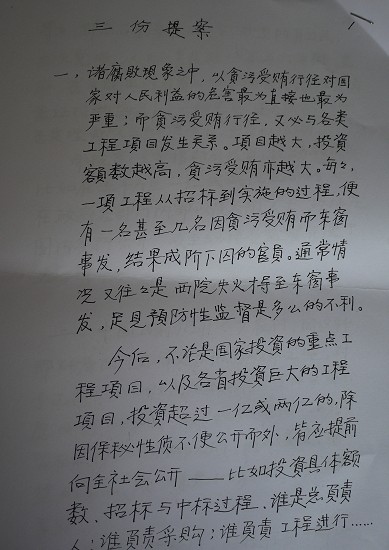 三份提案
一，诸腐敗现象之中，以貪污受贿行径对国
家对人民利益的危害最为直接也最为
严重；而貪污受贿行径，又必与各类
工程項目发生关系。項目越大，投資
額数越高，貪污受贿亦越大。每々，
一項工程从招标到实施的过程，便
有一名甚至几名因貪污受贿而东窗
事发，结果成阶下囚的官員。通常情
况又往々是西院失火得至东窗事
发，足見预防性监督是多么的不利。
今后，不论是国家投資的重点工
程項目，以及各省投資巨大的工程
項目，投資超过一亿或两亿的，除
因保秘性质不便公开而外，皆应提前
向全社会公开——比如投資具体額
数、招标与中标过程、谁是总負責
人；谁負責采购；谁負責工程进行……